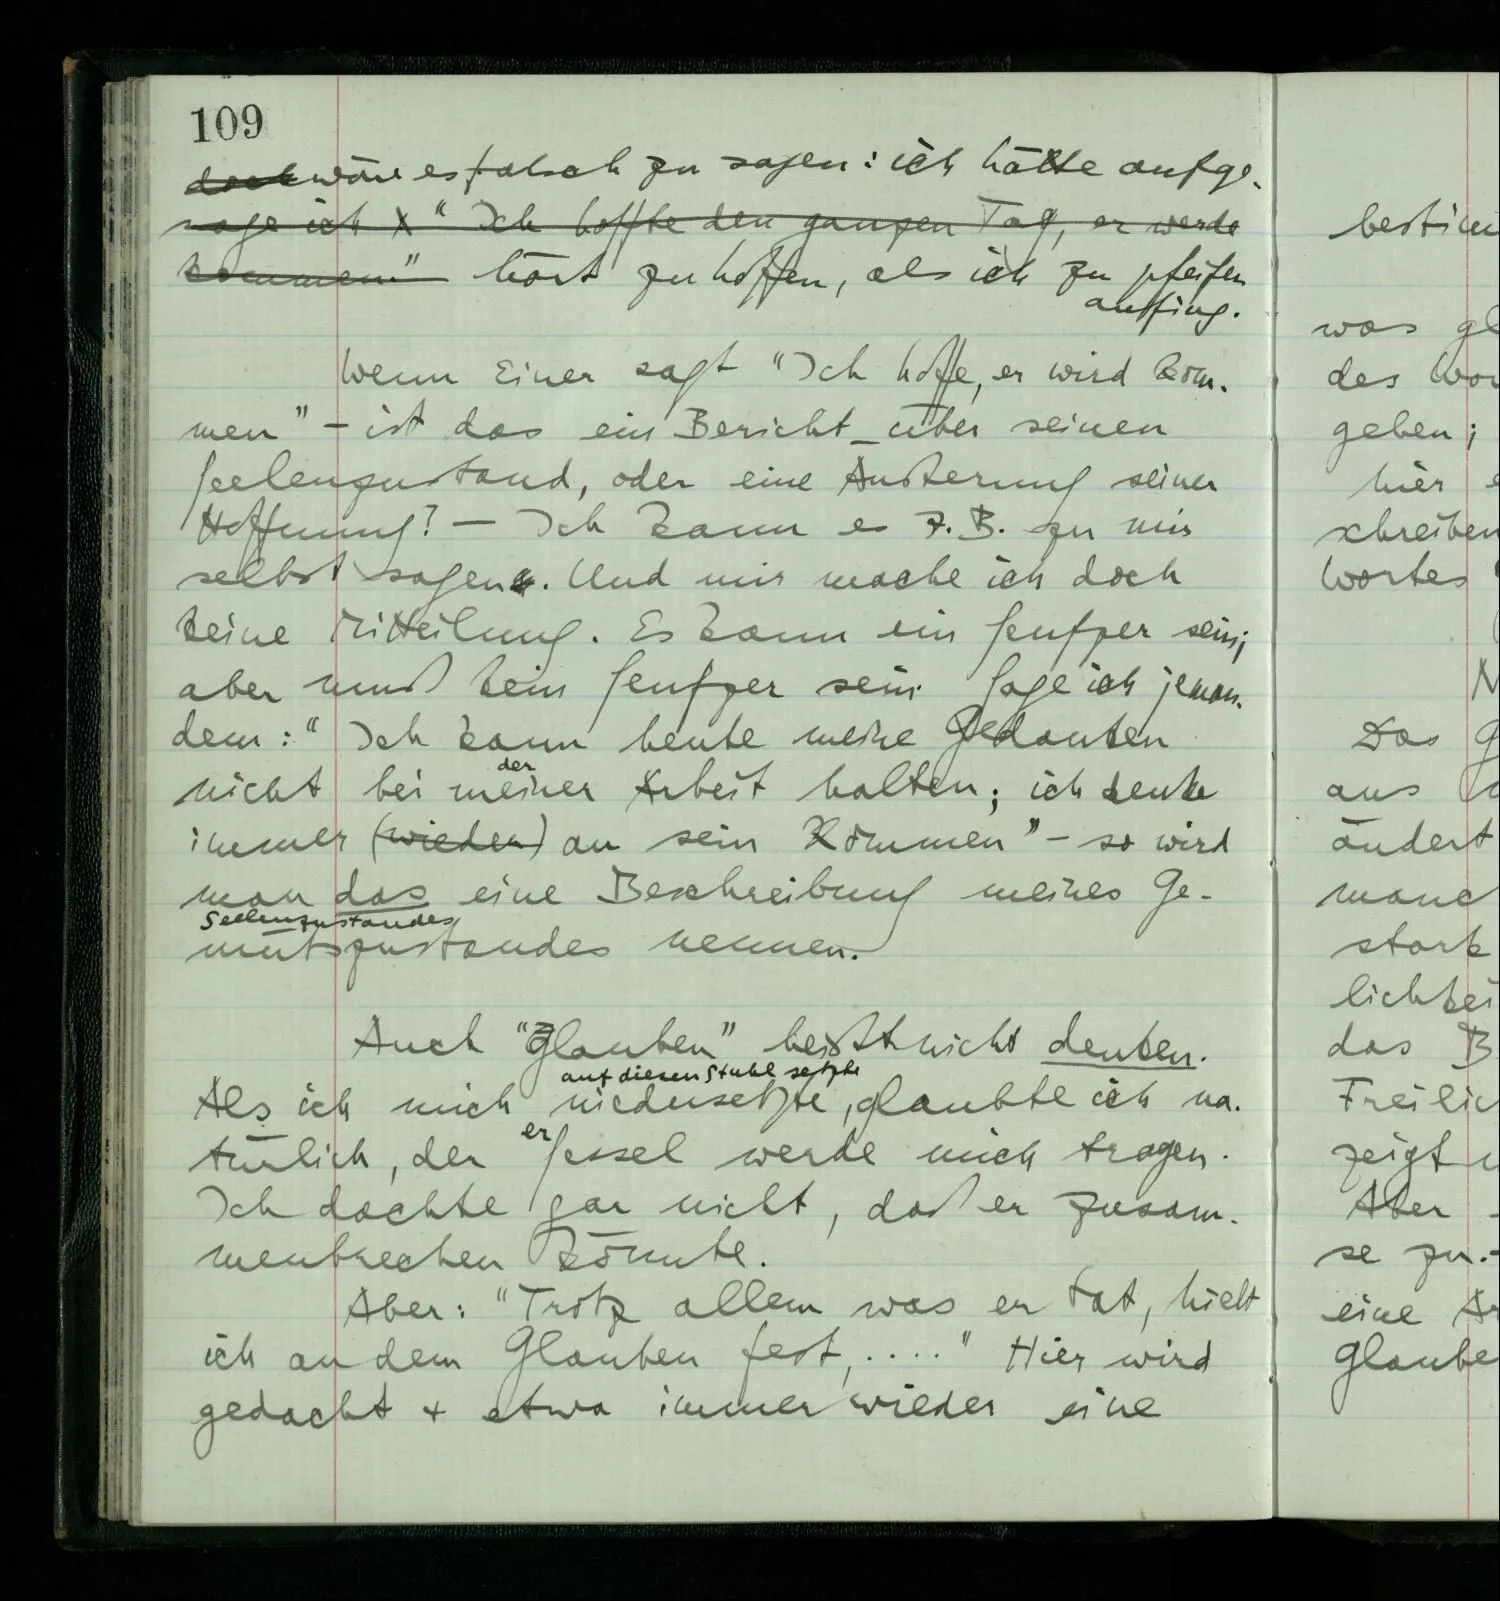 109
doch wäre es falsch zu sagen: ich hätte aufge-
sage ich x " Ich hoffte den ganzen Tag, er werde
kommen" hört zu hoffen, als ich zu pfeifen
anfing.
Wenn Einer sagt "Ich hoffe, er wird kom-
men" – ist das ein Bericht über seinen
Seelenzustand, oder eine Äußerung seiner
Hoffnung? – Ich kann es z.B. zu mir
selbst sagen. Und mir mache ich doch
keine Mitteilung. Es kann ein Seufzer sein;
aber muß kein Seufzer sein. Sage ich jeman-
dem: "Ich kann heute meine Gedanken
nicht bei meiner Arbeit halten; ich denke
der
immer (wieder) an sein Kommen" – so wird
man das eine Beschreibung meines Ge-
Seelenzustandes
mütszustandes nennen.
Auch "Glauben" heißt nicht denken.
auf diesen Stuhl setzte
Als ich mich niedersetzte, glaubte ich na-
er
türlich, der Sessel werde mich tragen.
Ich dachte gar nicht, daß er zusam-
menbrechen könnte.
Aber: "Trotz allem was er tat, hielt
ich an dem Glauben fest, ...." Hier wird
gedacht + etwa immer wieder eine
was
des
geben;
hier
schreiben
Wortes
Das
aus
ändert
stark
das B
zeigt
Aber
se zu.-
eine